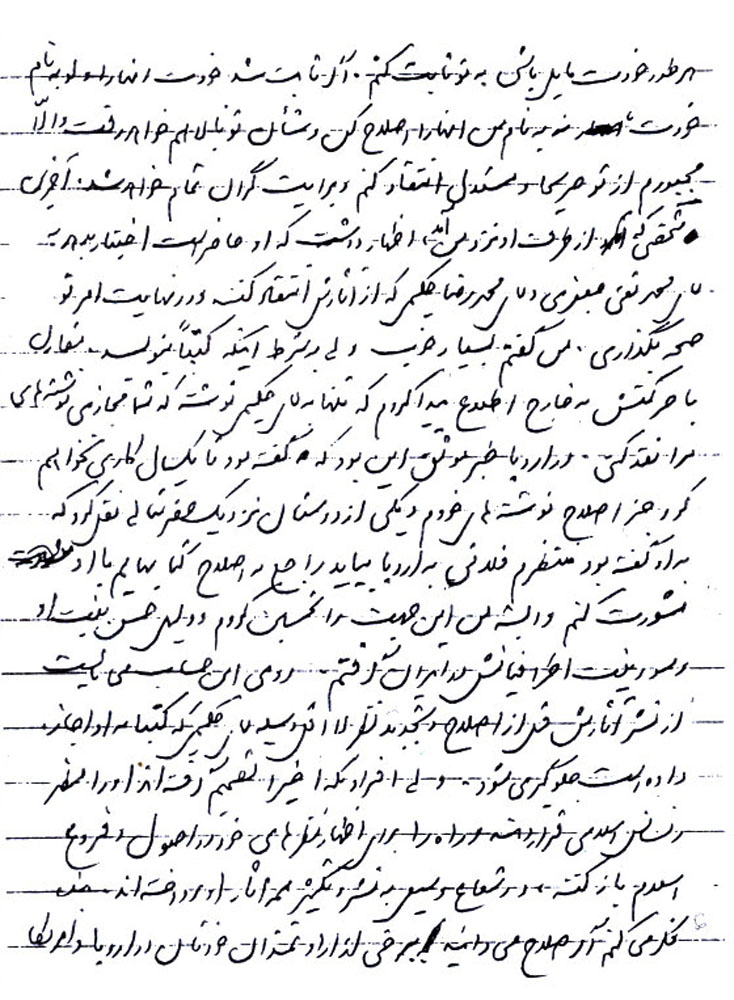 هر طور خودت مایل باشی به تو ثابت کنم. اگر ثابت شد خودت آنها را ولو به نام
خودت یا نه به نام من آنها را اصلاح کن و شأن تو بالا هم خواهد رفت و الّا
مجبورم از تو صریحاً و مستدل انتقاد کنم و برایت گران تمام خواهد شد. آخرین
شخصی که از طرف او نزد من آمد، اظهار داشت که او حاضر است اختیار بدهد به
آقای محمد تقی جعفری و آقای محمدرضا حکیمی که از آثارش انتقاد کنند و در نهایت امر تو
صحه بگذاری. من گفتم بسیار خوب ولی به شرط اینکه کتباً بنویسد. مقارن
با حرکتش به خارج اطلاع پیدا کردم که تنها به آقای حکیمی نوشته که شما مجازی نوشته‌های
مرا نقد کنی. در اروپا خبر موثق این بود که گفته بود تا یکسال کاری نخواهم
کرد جز اصلاح نوشته‌های خودم و یکی از دوستان نزدیک نقل کرد که
به او گفته بود منتظرم فلانی به اروپا بیاید راجع به اصلاح کتابهایم با او
مشورت کنم و البته من این جهت را تحسین کردم و دلیل حسن نیت او
و سوء نیت اطرافیانش در ایران گرفتم. روی این حساب می‌بایست
از نشر آثارش قبل از اصلاح و تجدید نظر لااقل وسیله آقای حکیمی که کتباً به او اجازه
داده است جلوگیری شود. ولی افرادی که اخیراً تصمیم گرفته‌اند او را مظهر
رنسانس اسلامی قرار دهند و راه را برای اظهار نظرهای خود در اصول و فروع
اسلام باز کنند، در شعاع وسیعی به نشر و تکثیر همه آثار او پرداخته‌اند.
فکر می‌کنم اگر صلاح می‌دانید برخی از ارادتمندان خودتان در اروپا و امریکا